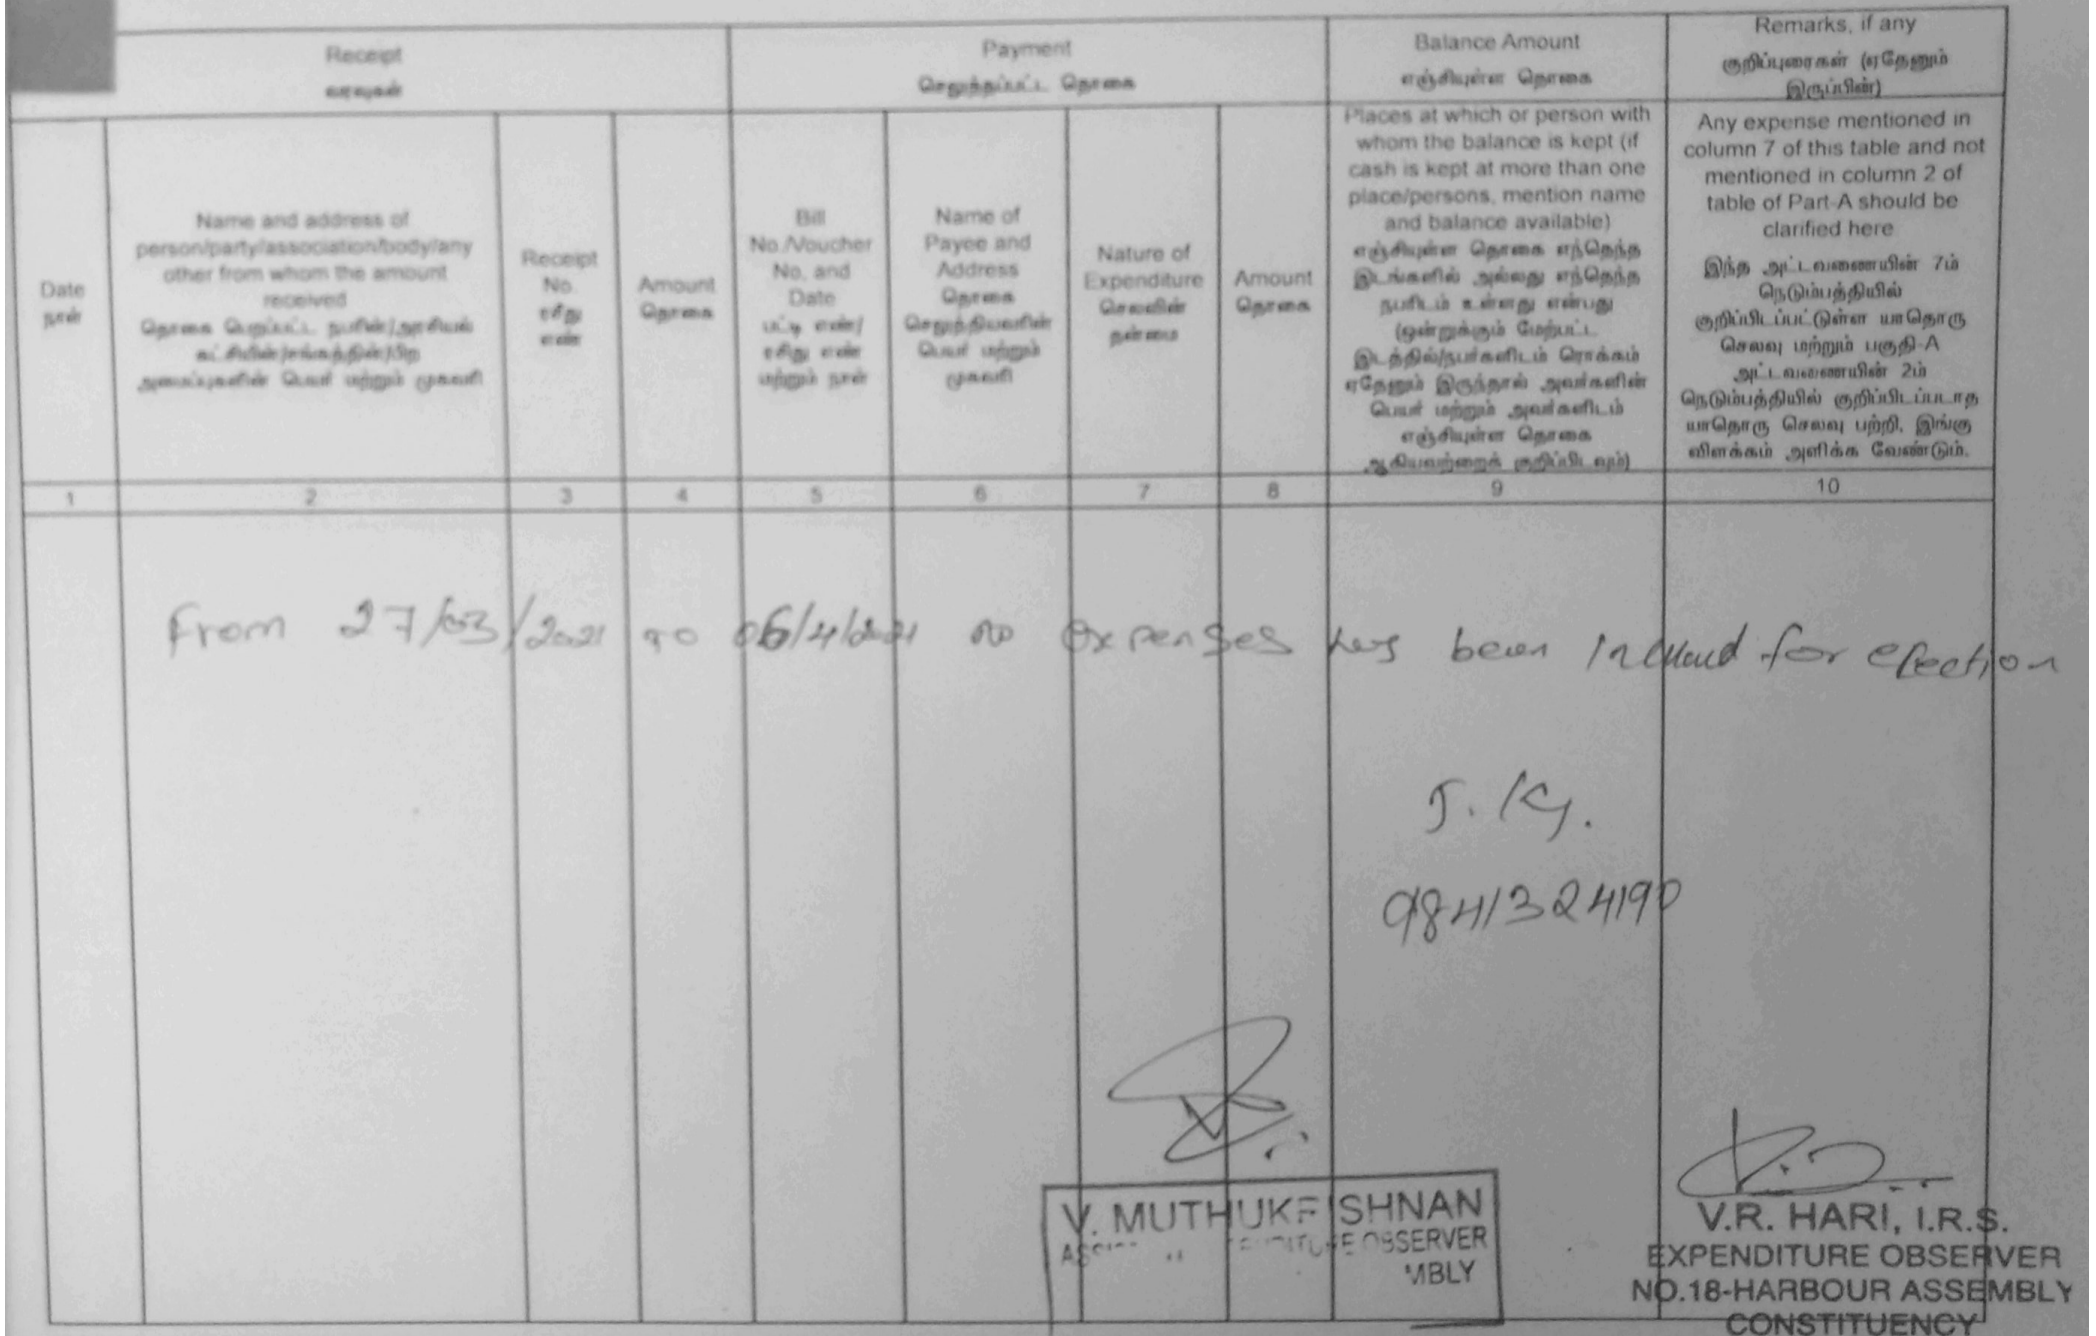 Receipt
வரவுகள்
Payment
செலுத்தப்பட்ட தொகை
Balance Amount
எஞ்சியுள்ள தொகை
Remarks, if any
குறிப்புரைகள் (ஏதேனும்
இருப்பின்)
Date
நாள்
Name and address of
person/party/association/body/any
other from whom the amount
received
தொகை பெறப்பட்ட நபரின்/அரசியல்
கட்சியின்/சங்கத்தின்/பிற
அமைப்புகளின் பெயர் மற்றும் முகவரி
Receipt
No.
ரசீது
எண்
Amount
தொகை
Bill
No./Voucher
No, and
Date
பட்டி எண்/
ரசீது எண்
மற்றும் நாள்
Name of
Payee and
Address
தொகை
செலுத்தியவரின்
பெயர் மற்றும்
முகவரி
Nature of
Expenditure
செலவின்
தன்மை
Amount
தொகை
Places at which or person with
whom the balance is kept (if
cash is kept at more than one
place/persons, mention name
and balance available)
எஞ்சியுள்ள தொகை எந்தெந்த
இடங்களில் அல்லது எந்தெந்த
நபரிடம் உள்ளது என்பது
(ஒன்றுக்கும் மேற்பட்ட
இடத்தில்/நபர்களிடம் ரொக்கம்
ஏதேனும் இருந்தால் அவர்களின்
பெயர் மற்றும் அவர்களிடம்
எஞ்சியுள்ள தொகை
ஆகியவற்றைக் குறிப்பிடவும்)
Any expense mentioned in
column 7 of this table and not
mentioned in column 2 of
table of Part-A should be
clarified here
இந்த அட்டவணையின் 7ம்
நெடும்பத்தியில்
குறிப்பிடப்பட்டுள்ள யாதொரு
செலவு மற்றும் பகுதி-A
அட்டவணையின் 2ம்
நெடும்பத்தியில் குறிப்பிடப்படாத
யாதொரு செலவு பற்றி, இங்கு
விளக்கம் அளிக்க வேண்டும்.
1 2 3 4 5 6 7 8 9 10
From 27/03/2021 to 06/4/2021 no expenses has been for election
9841324190
V. MUTHUKRISHNAN
OBSERVER
MBLY
V.R. HARI, I.R.S.
EXPENDITURE OBSERVER
NO.18-HARBOUR ASSEMBLY
CONSTITUENCY